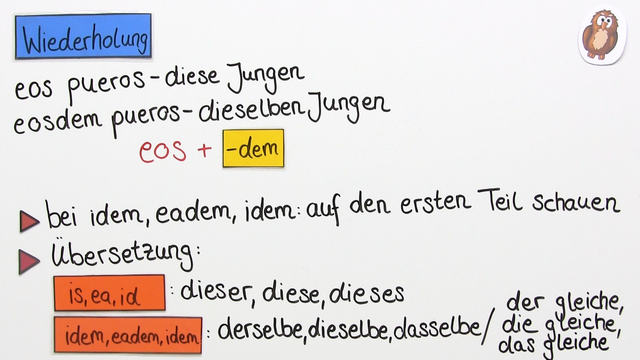 Wiederholung
eos pueros - diese Jungen
eosdem pueros - dieselben Jungen
eos + -dem
bei idem, eadem, idem: auf den ersten Teil schauen
Übersetzung:
is, ea, id : dieser, diese, dieses
idem, eadem, idem : derselbe, dieselbe, dasselbe / der gleiche,
die gleiche,
das gleiche